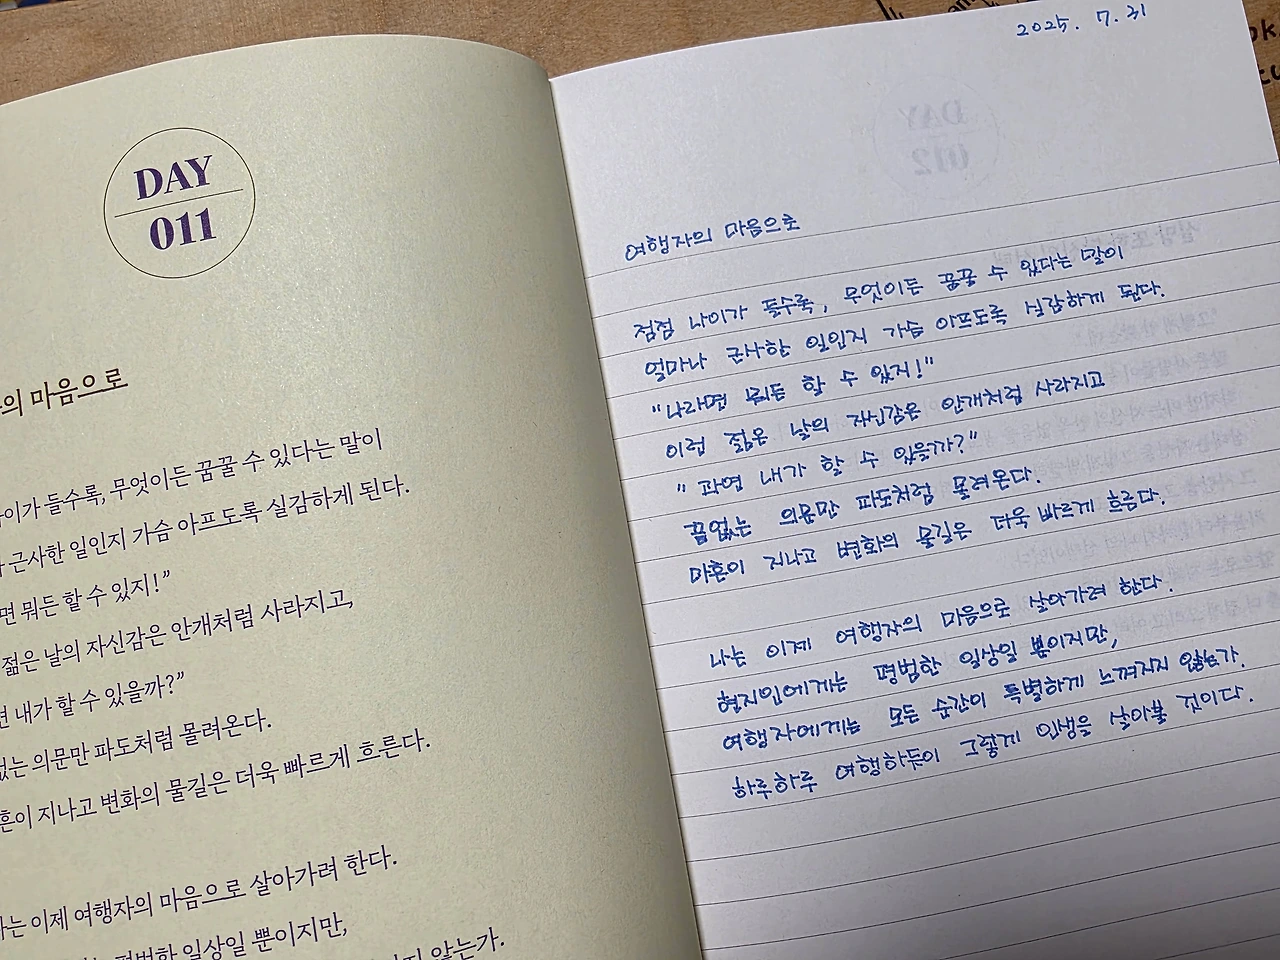 DAY
011
의 마음으로
이가 들수록, 무엇이든 꿈꿀 수 있다는 말이
근사한 일인지 가슴 아프도록 실감하게 된다.
면 뭐든 할 수 있지!”
젊은 날의 자신감은 안개처럼 사라지고,
내가 할 수 있을까?”
없는 의문만 파도처럼 몰려온다.
흔이 지나고 변화의 물길은 더욱 빠르게 흐른다.
는 이제 여행자의 마음으로 살아가려 한다.
평범한 일상일 뿐이지만,
않는가.
2025. 7. 31
여행자의 마음으로
점점 나이가 들수록, 무엇이든 꿈꿀 수 있다는 말이
얼마나 근사한 일인지 가슴 아프도록 실감하게 된다.
"나라면 뭐든 할 수 있지!"
이런 젊은 날의 자신감은 안개처럼 사라지고
"과연 내가 할 수 있을까?"
끝없는 의문만 파도처럼 몰려온다.
마흔이 지나고 변화의 물길은 더욱 빠르게 흐른다.
나는 이제 여행자의 마음으로 살아가려 한다.
현지인에게는 평범한 일상일 뿐이지만,
여행자에게는 모든 순간이 특별하게 느껴지지 않는가.
하루하루 여행하듯이 그렇게 인생을 살아볼 것이다.